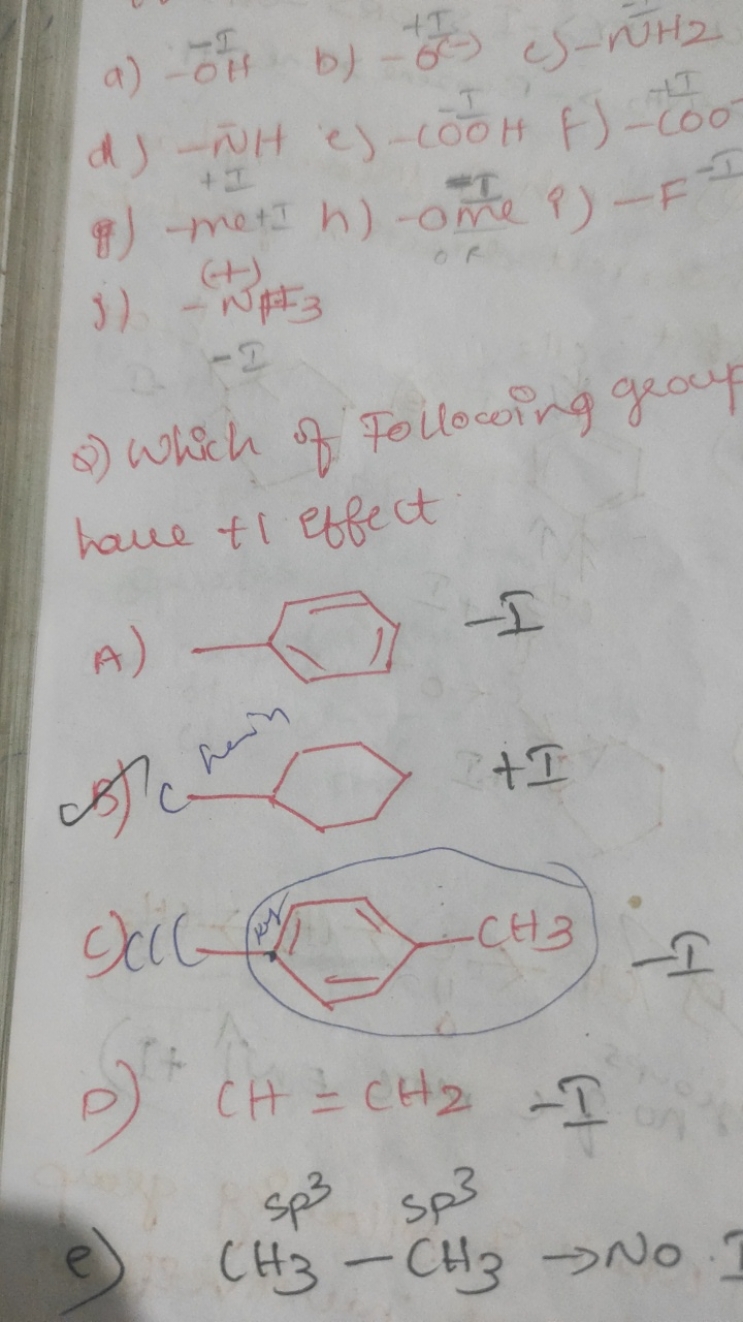 -I +I -I
a) -OH b) -O(-) c) -NH2
-I +I
d) -NH e) -COOH f) -COO-
+I -I
g) -me +I h) -Ome i) -F -I
OR
(+)
j) -NH3
-I
Q) Which of Following group
have +I effect
A) -I
B) C +I
C) CCC -CH3 -I
D) CH = CH2 -I
sp3 sp3
e) CH3 - CH3 → No I